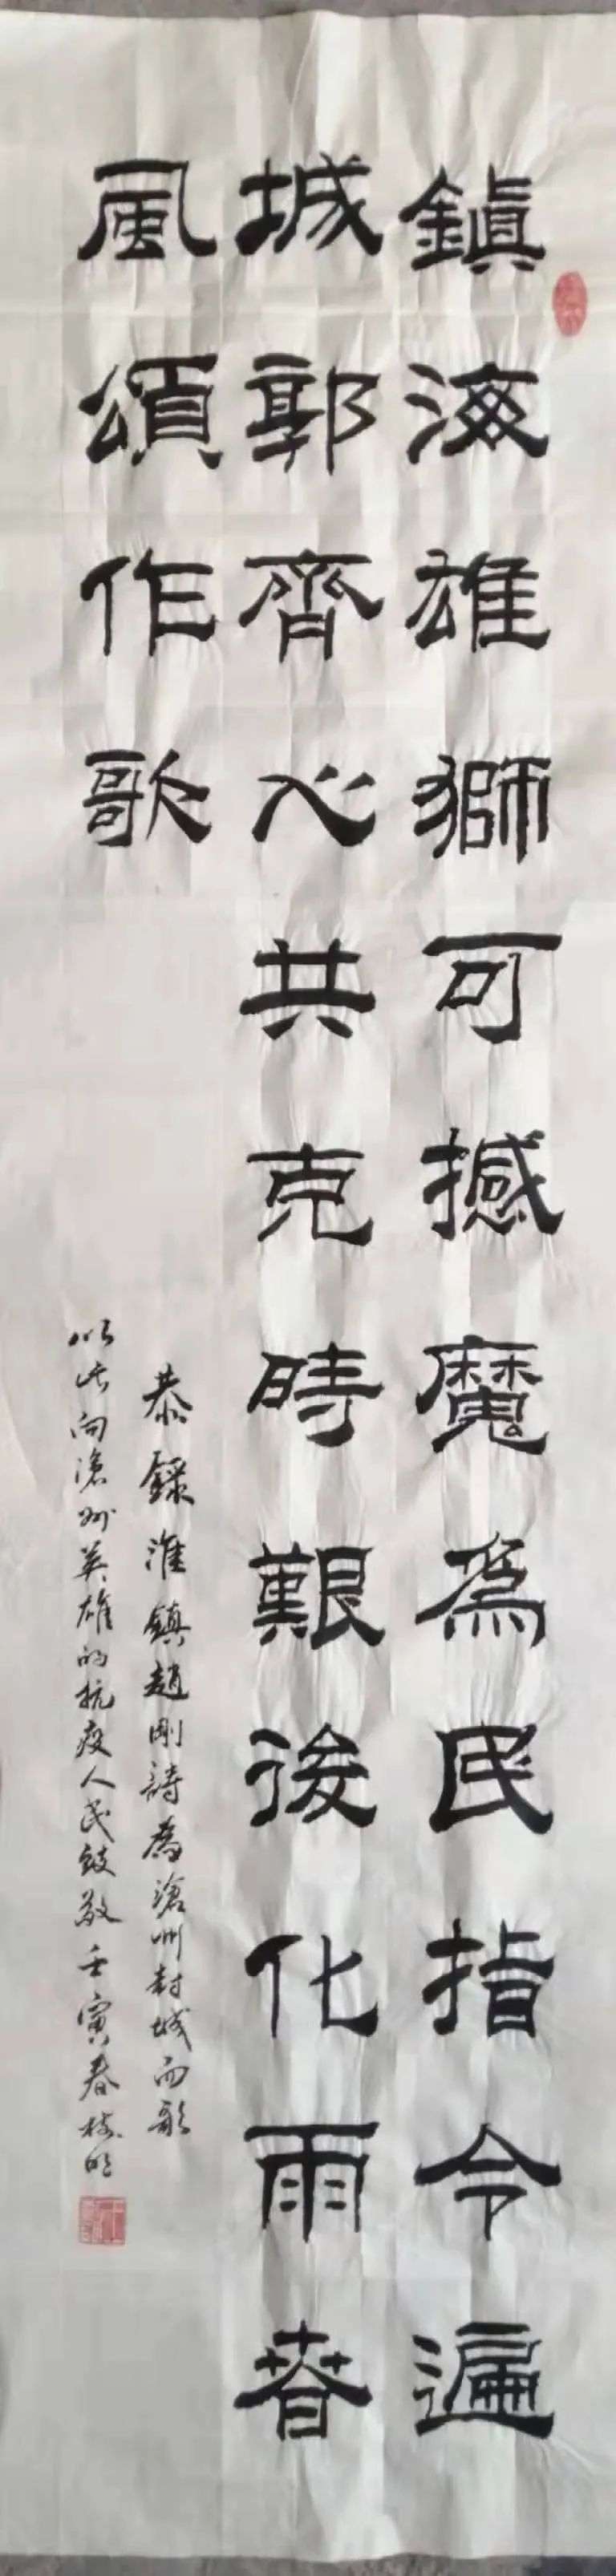 鎮海雄獅可撼魔為民指令遍
城郭齊心共克時艱後化雨春
風頌作歌
恭錄淮鎮趙剛詩為滄州封城而歌
以此向滄州英雄的抗疫人民致敬壬寅春